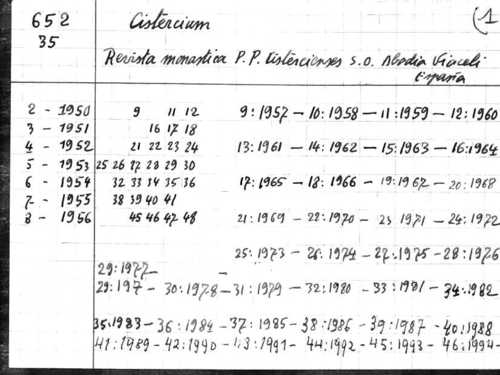 652 Cistercium (1
35
Revista monastica P.P. Cistercienses S.O. Abadia Viaceli
España
2 - 1950 9 11 12 9:1957 - 10:1958 - 11:1959 - 12:1960
3 - 1951 16 17 18
4 - 1952 21 22 23 24 13:1961 - 14:1962 - 15:1963 - 16:1964
5 - 1953 25 26 27 28 29 30
6 - 1954 32 33 34 35 36 17:1965 - 18:1966 - 19:1967 - 20:1968
7 - 1955 38 39 40 41
8 - 1956 45 46 47 48 21:1969 - 22:1970 - 23 1971 - 24:1972
25:1973 - 26:1974 - 27:1975 - 28:1976
29:1977 -
29:197 - 30:1978 - 31:1979 - 32:1980 - 33:1981 - 34:1982
35:1983 - 36:1984 - 37:1985 - 38:1986 - 39:1987 - 40:1988
41:1989 - 42:1990 - 43:1991 - 44:1992 - 45:1993 - 46:1994 -